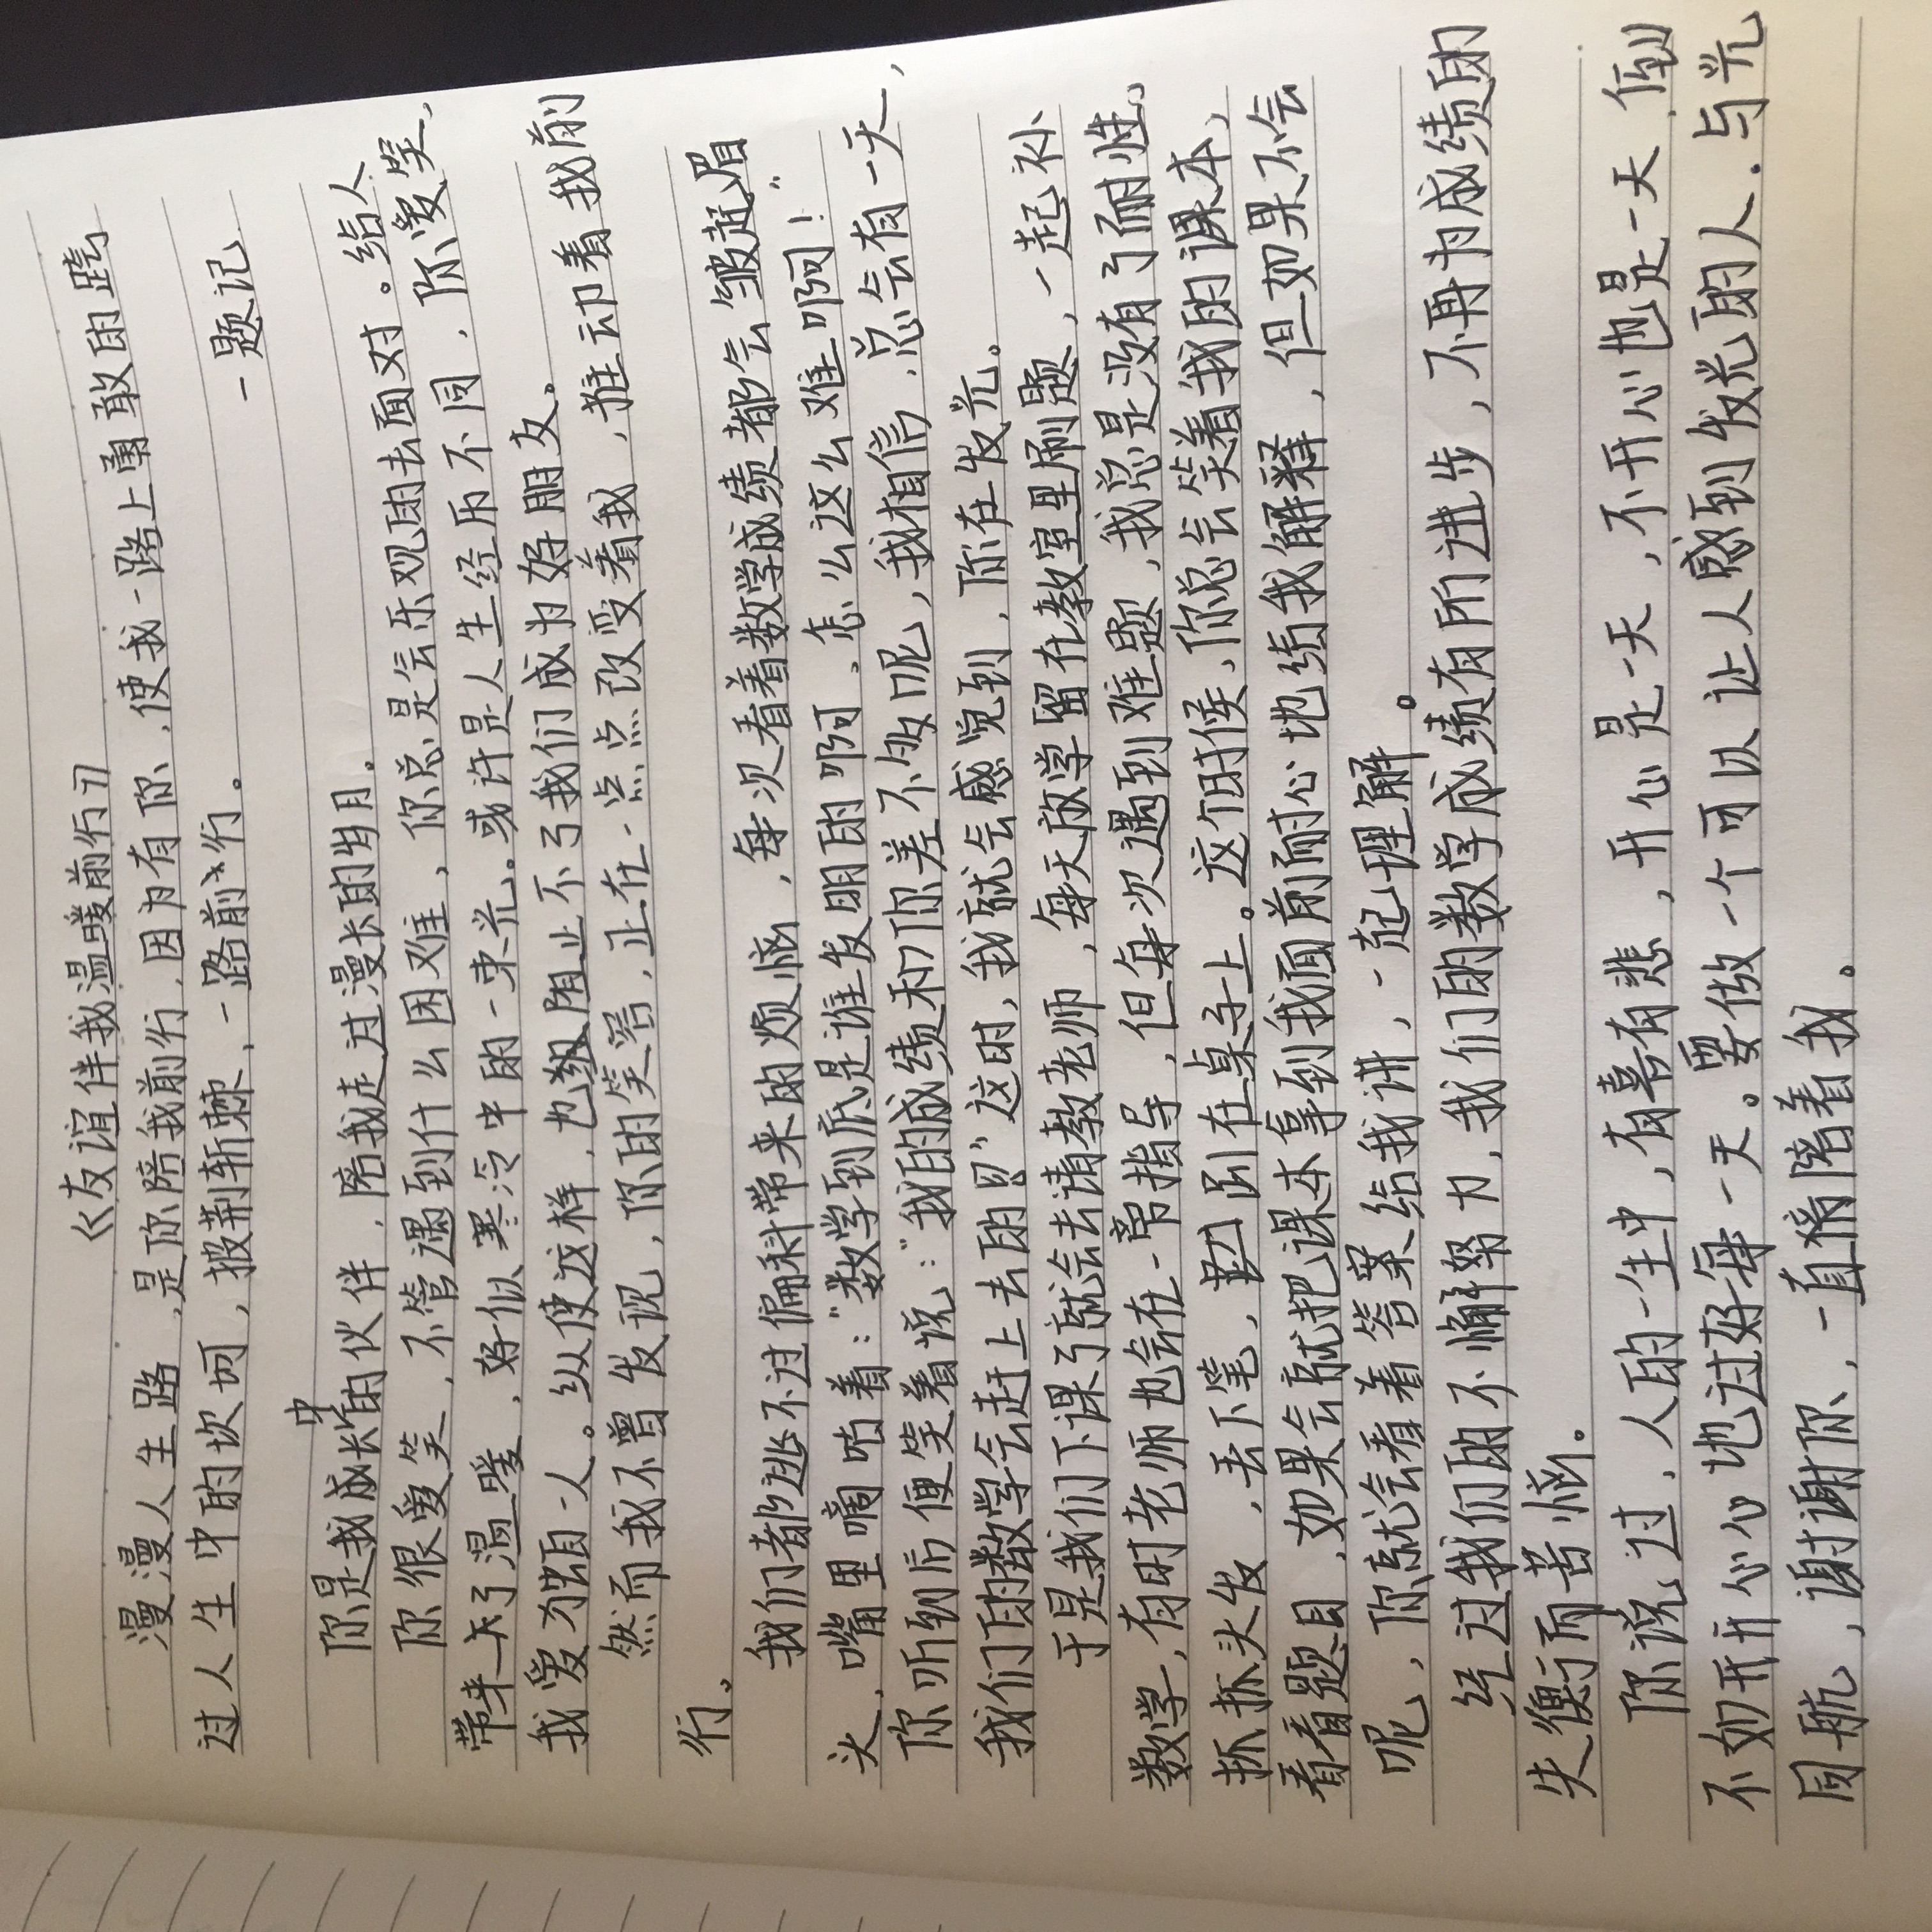 《友谊伴我温暖前行》
漫漫人生路,是你陪我前行,因为有你,使我一路上勇敢的跨
过人生中的坎坷,披荆斩棘,一路前行。
一题记
你是我成长中的伙伴,陪我走过漫长的岁月。
你很爱笑,不管遇到什么困难,你总是会乐观的去面对。给人
带来了温暖,好似寒冷中的一束光。或许是人生经历不同,你爱笑,
我爱独自一人。纵使这样,也阻止不了我们成为好朋友。
然而我不曾发现,你的笑容,正在一点点改变着我,推动着我前
行。
我们都逃不过偏科带来的烦恼,每次看着数学成绩都会皱起眉
头,嘴里嘀咕着:“数学到底是谁发明的啊,怎么这么难啊!”
你听到后便笑着说:“我的成绩和你差不多呢,我相信,总会有一天,
我们的数学会赶上去的!”这时,我就会感觉到,你在发光。
于是我们下课了就会去请教老师,每天放学留在教室里刷题,一起补
数学,有时老师也会在一旁指导,但每次遇到难题,我总是没有了耐性,
抓抓头发,丢下笔,趴在桌子上。这个时候,你总会笑着我的课本,
看看题目,如果会就把课本拿到我面前耐心地给我解释,但如果不会
呢,你就会看着答案给我讲,一起理解。
经过我们的不懈努力,我们的数学成绩有所进步,不再为成绩的
失衡而苦恼。
你说过,人的一生中,有喜有悲,开心是一天,不开心也是一天,倒
不如开开心心地过好每一天。要做一个可以让人感到发光的人.与光
同航,谢谢你,一直陪着我。